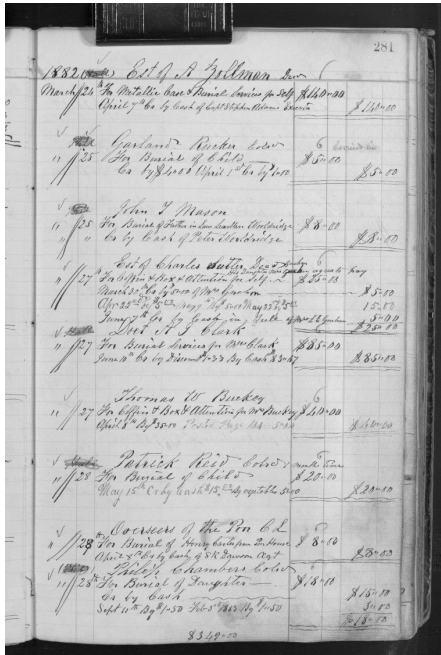 281
1882 Est of A Zollman Dec
March 24th For Metallic Case & Burial Services for Self $140-00
April 7th Cr by Cash of Capt Stephen Adams $140-00
Garland Rucker Colored 6
" 25 For Burial of Child $5-00
Cr by $4-00 April 1st Cr by 1-00 $5-00
John T Mason 6
" 25 For Burial of Father in Law Wooldridge $8-00
" Cr by Cash of Peter Wooldridge $8-00
Est of Charles
" 27 For Coffin & Box & Attention for Self $25-00
March 30th Cr by 5-00 of $5-00
15.00
June 7th Cr by Cash in full of 5-00
$25-00
Doct Clark
" 27 For Burial Services for Mrs Clark $85-00
June 10th Cr by Discount 1-33 By Cash 83-67 $85-00
Thomas W Buckey 6
" 27 For Coffin & Box & Attention for Mrs Buckey $40-00
April 8th By 35-00 5-00 $40-00
Patrick Reid Colored
" 28 For Burial of Child $20-00
May 15th Cr by Cash $15.00 By 5-00 $20-00
Overseers of the Poor C L 6
" 28th For Burial of Henry $8-00
April 8th Cr by Cash of S R Dawson Agt $8-00
Chambers Colored 6
" 28th For Burial of Daughter $18-00
Cr by Cash $15-00
Sept 11th By 1-50 Feb 3rd 1883 By 1-50 3-00
$18-00
$349-00